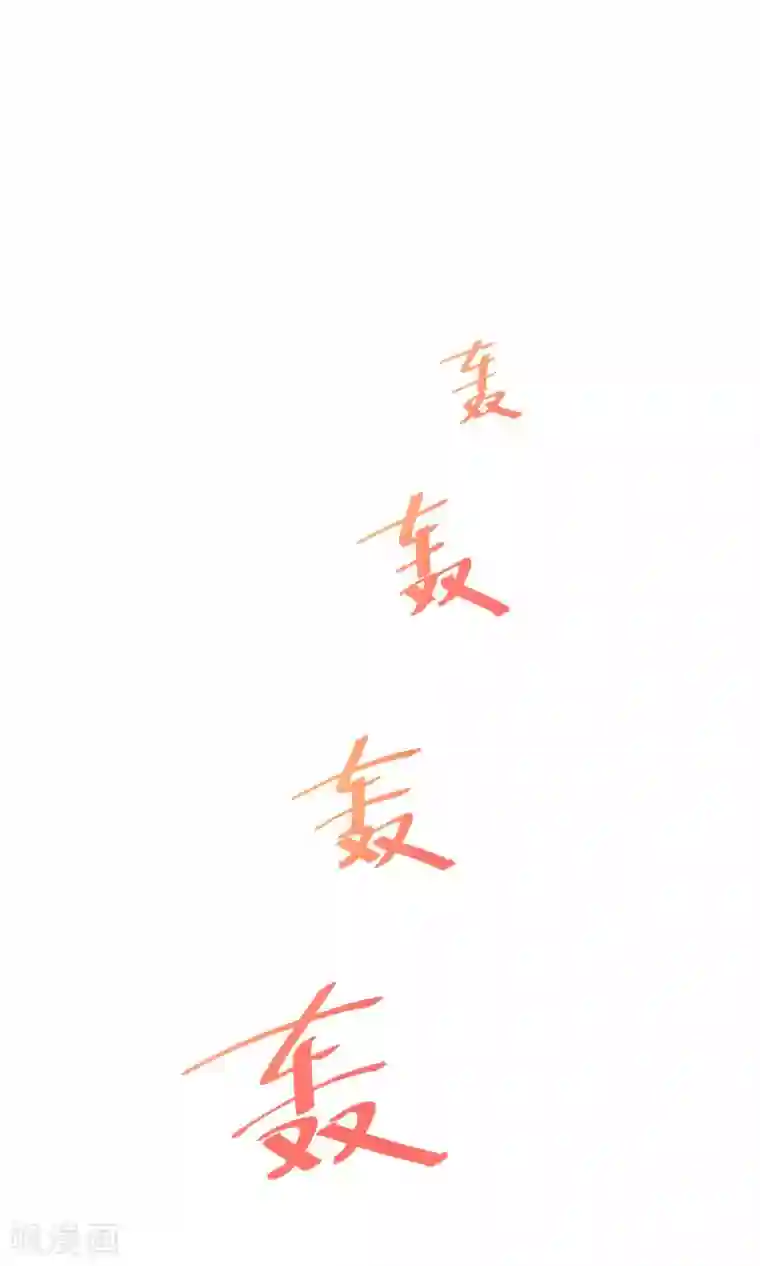 轰
轰
轰
轰
漫画